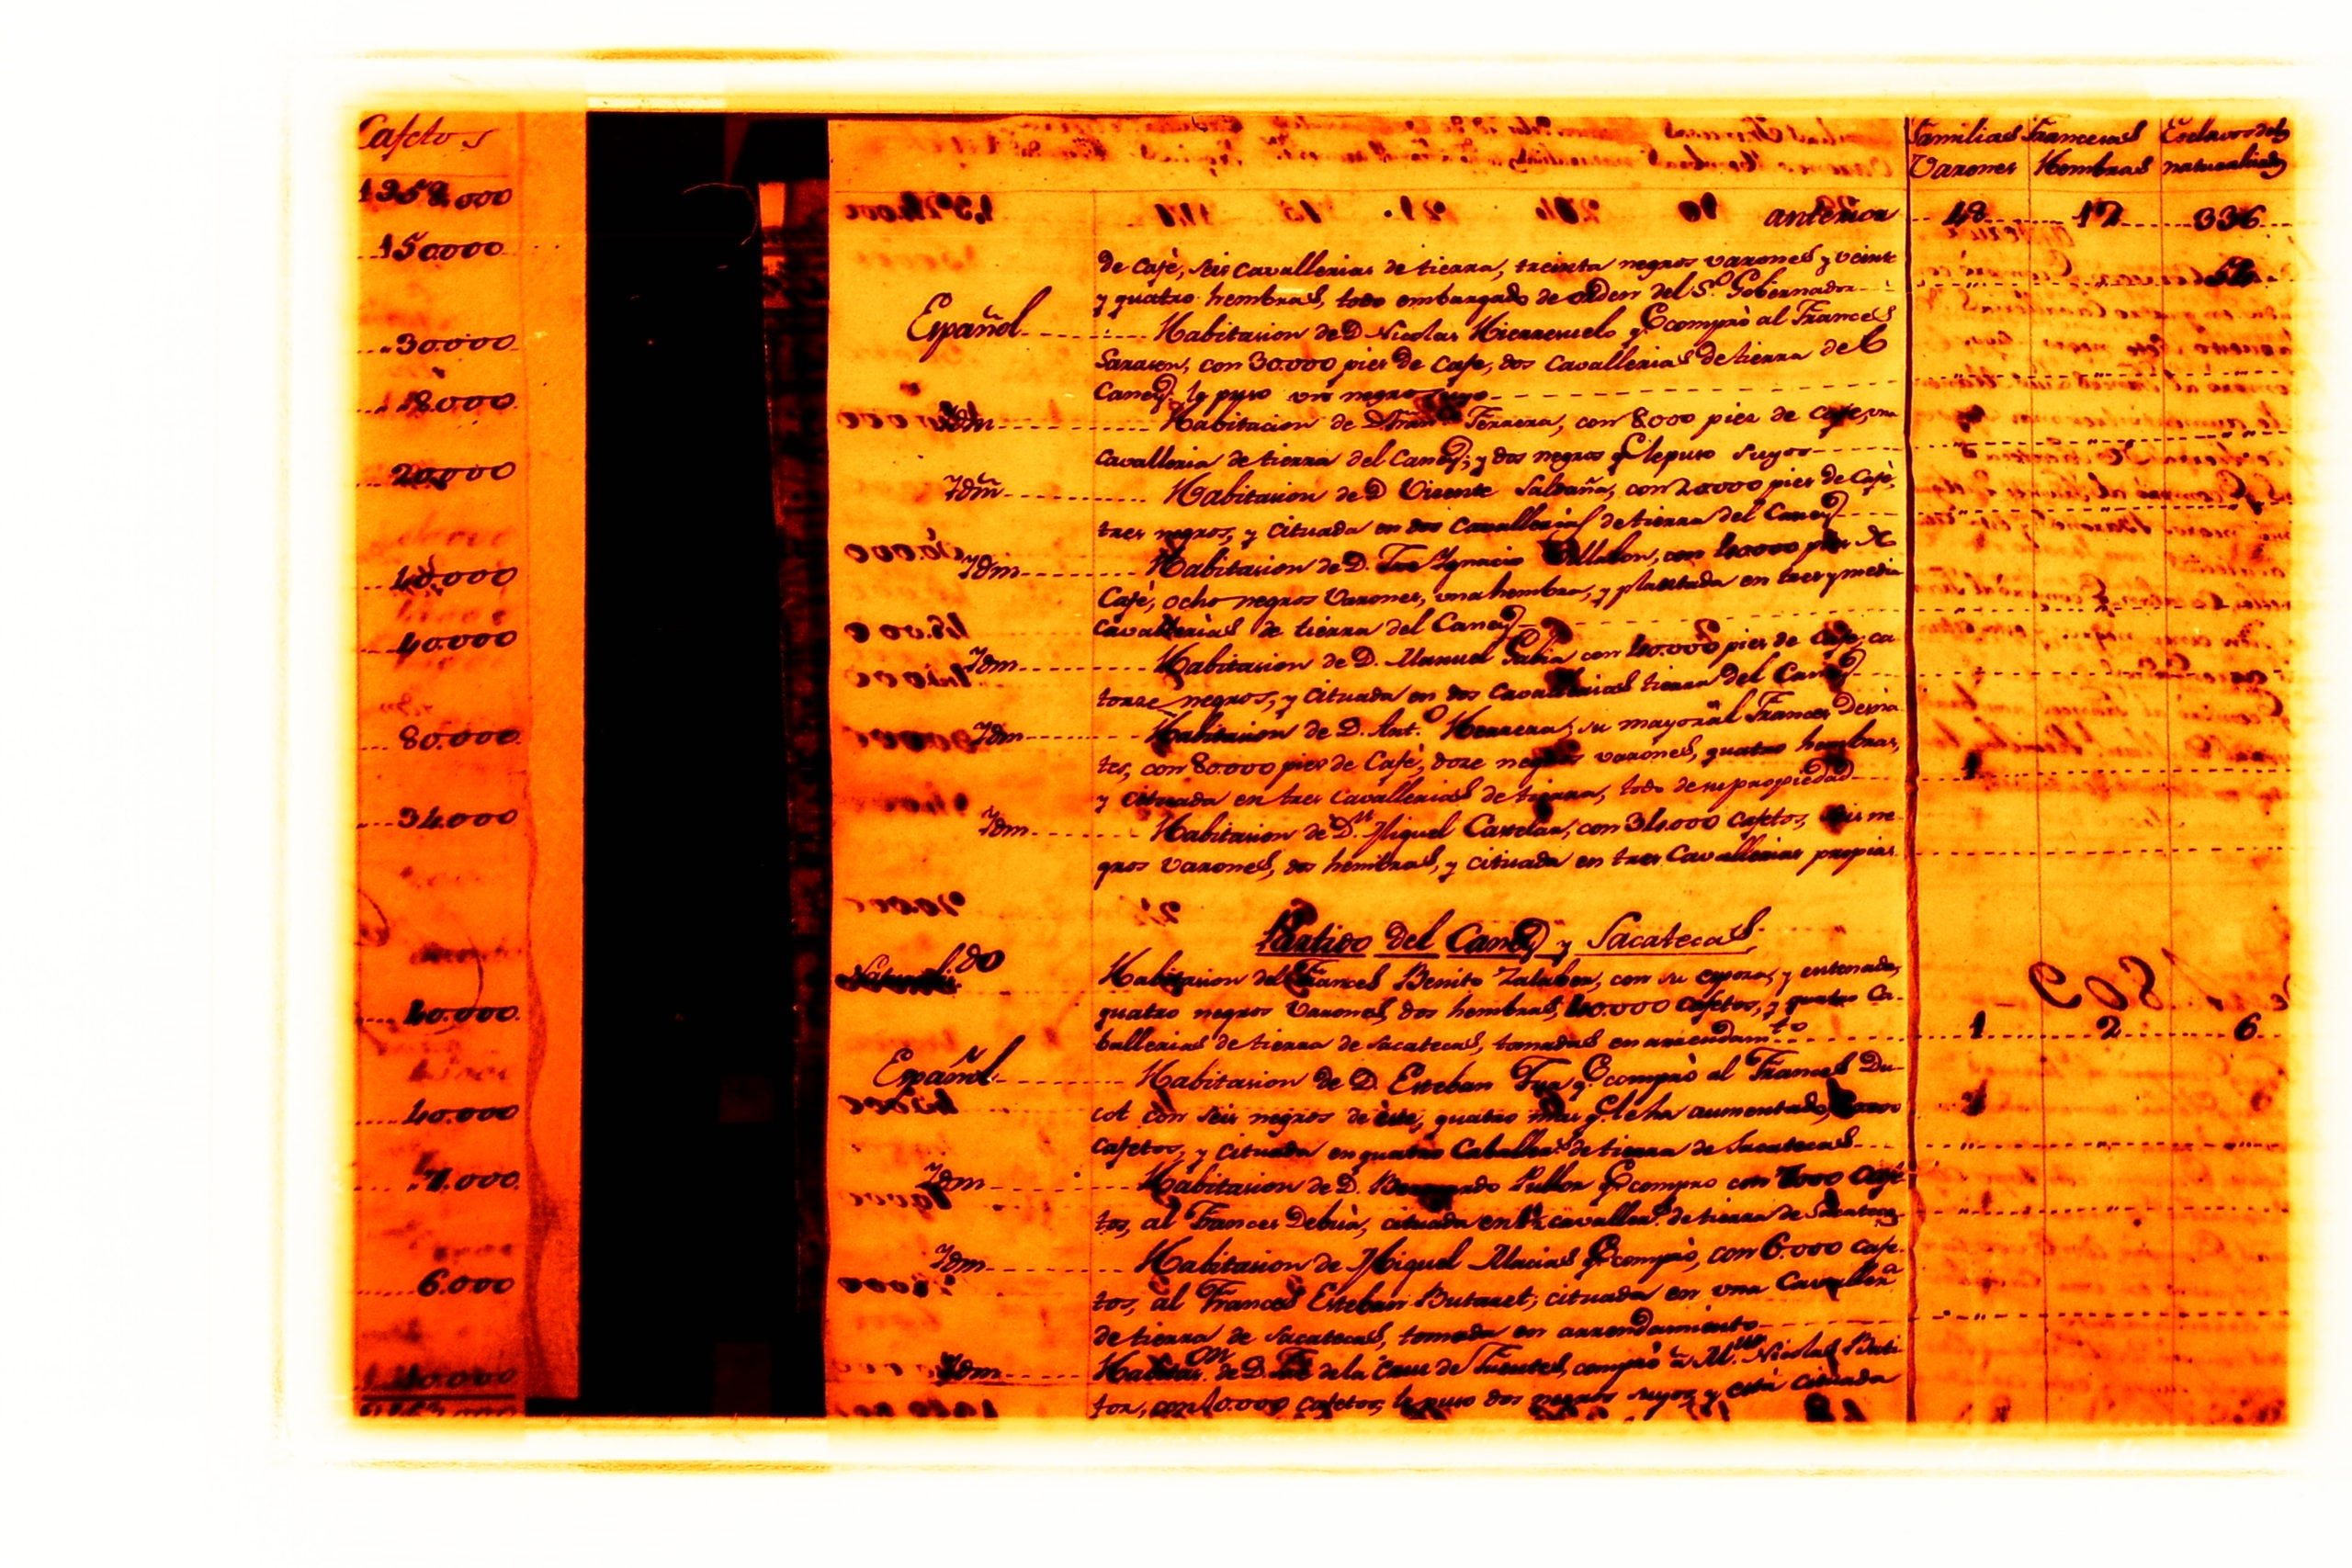 Cafetos
150.000
30.000
18.000
20.000
40.000
40.000
80.000
34.000
40.000
40.000
7.000
6.000
Familias Francesas Esclavos de los
Varones Hembras naturalizados
anterior 48 17 336
de Cafè, seis cavallerias de tierra, treinta negros varones y veinte
y quatro hembras, todo embargado de orden del Sr. Gobernador
Español Habitasion de D. Nicolas Hierresuelo q.e comprò al Frances
Sarasen, con 30.000 pies de Cafe, dos Cavallerias de tierra del
Caney, le puso un negro suyo
Idm Habitacion de D. Fran.co Ferrera, con 8.000 pies de Cafe, una
cavalleria de tierra del Caney; y dos negros q.e le puso suyos
Idm Habitasion de D. Vicente Saldaña, con 20.000 pies de Cafè,
tres negros, y cituada en dos cavallerias de tierra del Caney
Idm Habitasion de D. Jose Ignacio Villalon, con 40.000 pies de
Cafè, ocho negros Varones, una hembra, y plantada en tres y media
cavallerias de tierra del Caney
Idm Habitasion de D. Manuel con 40.000 pies de Cafe, ca
torse negros, y cituada en dos cavallerias tierra del Caney
Idm Habitasion de D. Ant.o Herrera, su mayoral Frances
con 80.000 pies de Cafè, dose negros varones, quatro hembras,
y cituada en tres Cavallerias de tierra, todo de su propiedad
Idm Habitasion de D.n Miguel Castelar, con 34.000 cafetos, seis ne-
gros varones, dos hembras, y cituada en tres Cavallerias propias
Partido del Caney y Sacatecas
Naturaliz.do Habitasion del Frances Benito con su esposa, y entenada,
quatro negros Varones, dos hembras, 40.000 cafetos, y quatro Ca-
ballerias de tierra de Sacatecas, tomadas en arrendam.to 1 2 6
Español Habitasion de D. Esteban q.e comprò al Frances Du-
cot con seis negros de èste, quatro mas q.e le ha aumentado,
cafetos, y cituada en quatro Caballer.s de tierra de Sacatecas
Idm Habitasion de D. Bernardo q.e compro con 7.000 Cafe
tos, al Frances cituada en cavaller.a de tierra de Sacatecas
Idm Habitasion de Miguel Macias q.e comprò, con 6.000 cafe-
tos, al Frances Esteban cituada en una Cavaller.a
de tierra de Sacatecas, tomada en arrendamiento
Idm de D. de la Cruz de Fuentes, comprò à Nicolas
con cafetos, le puso dos negros suyos, y està cituada